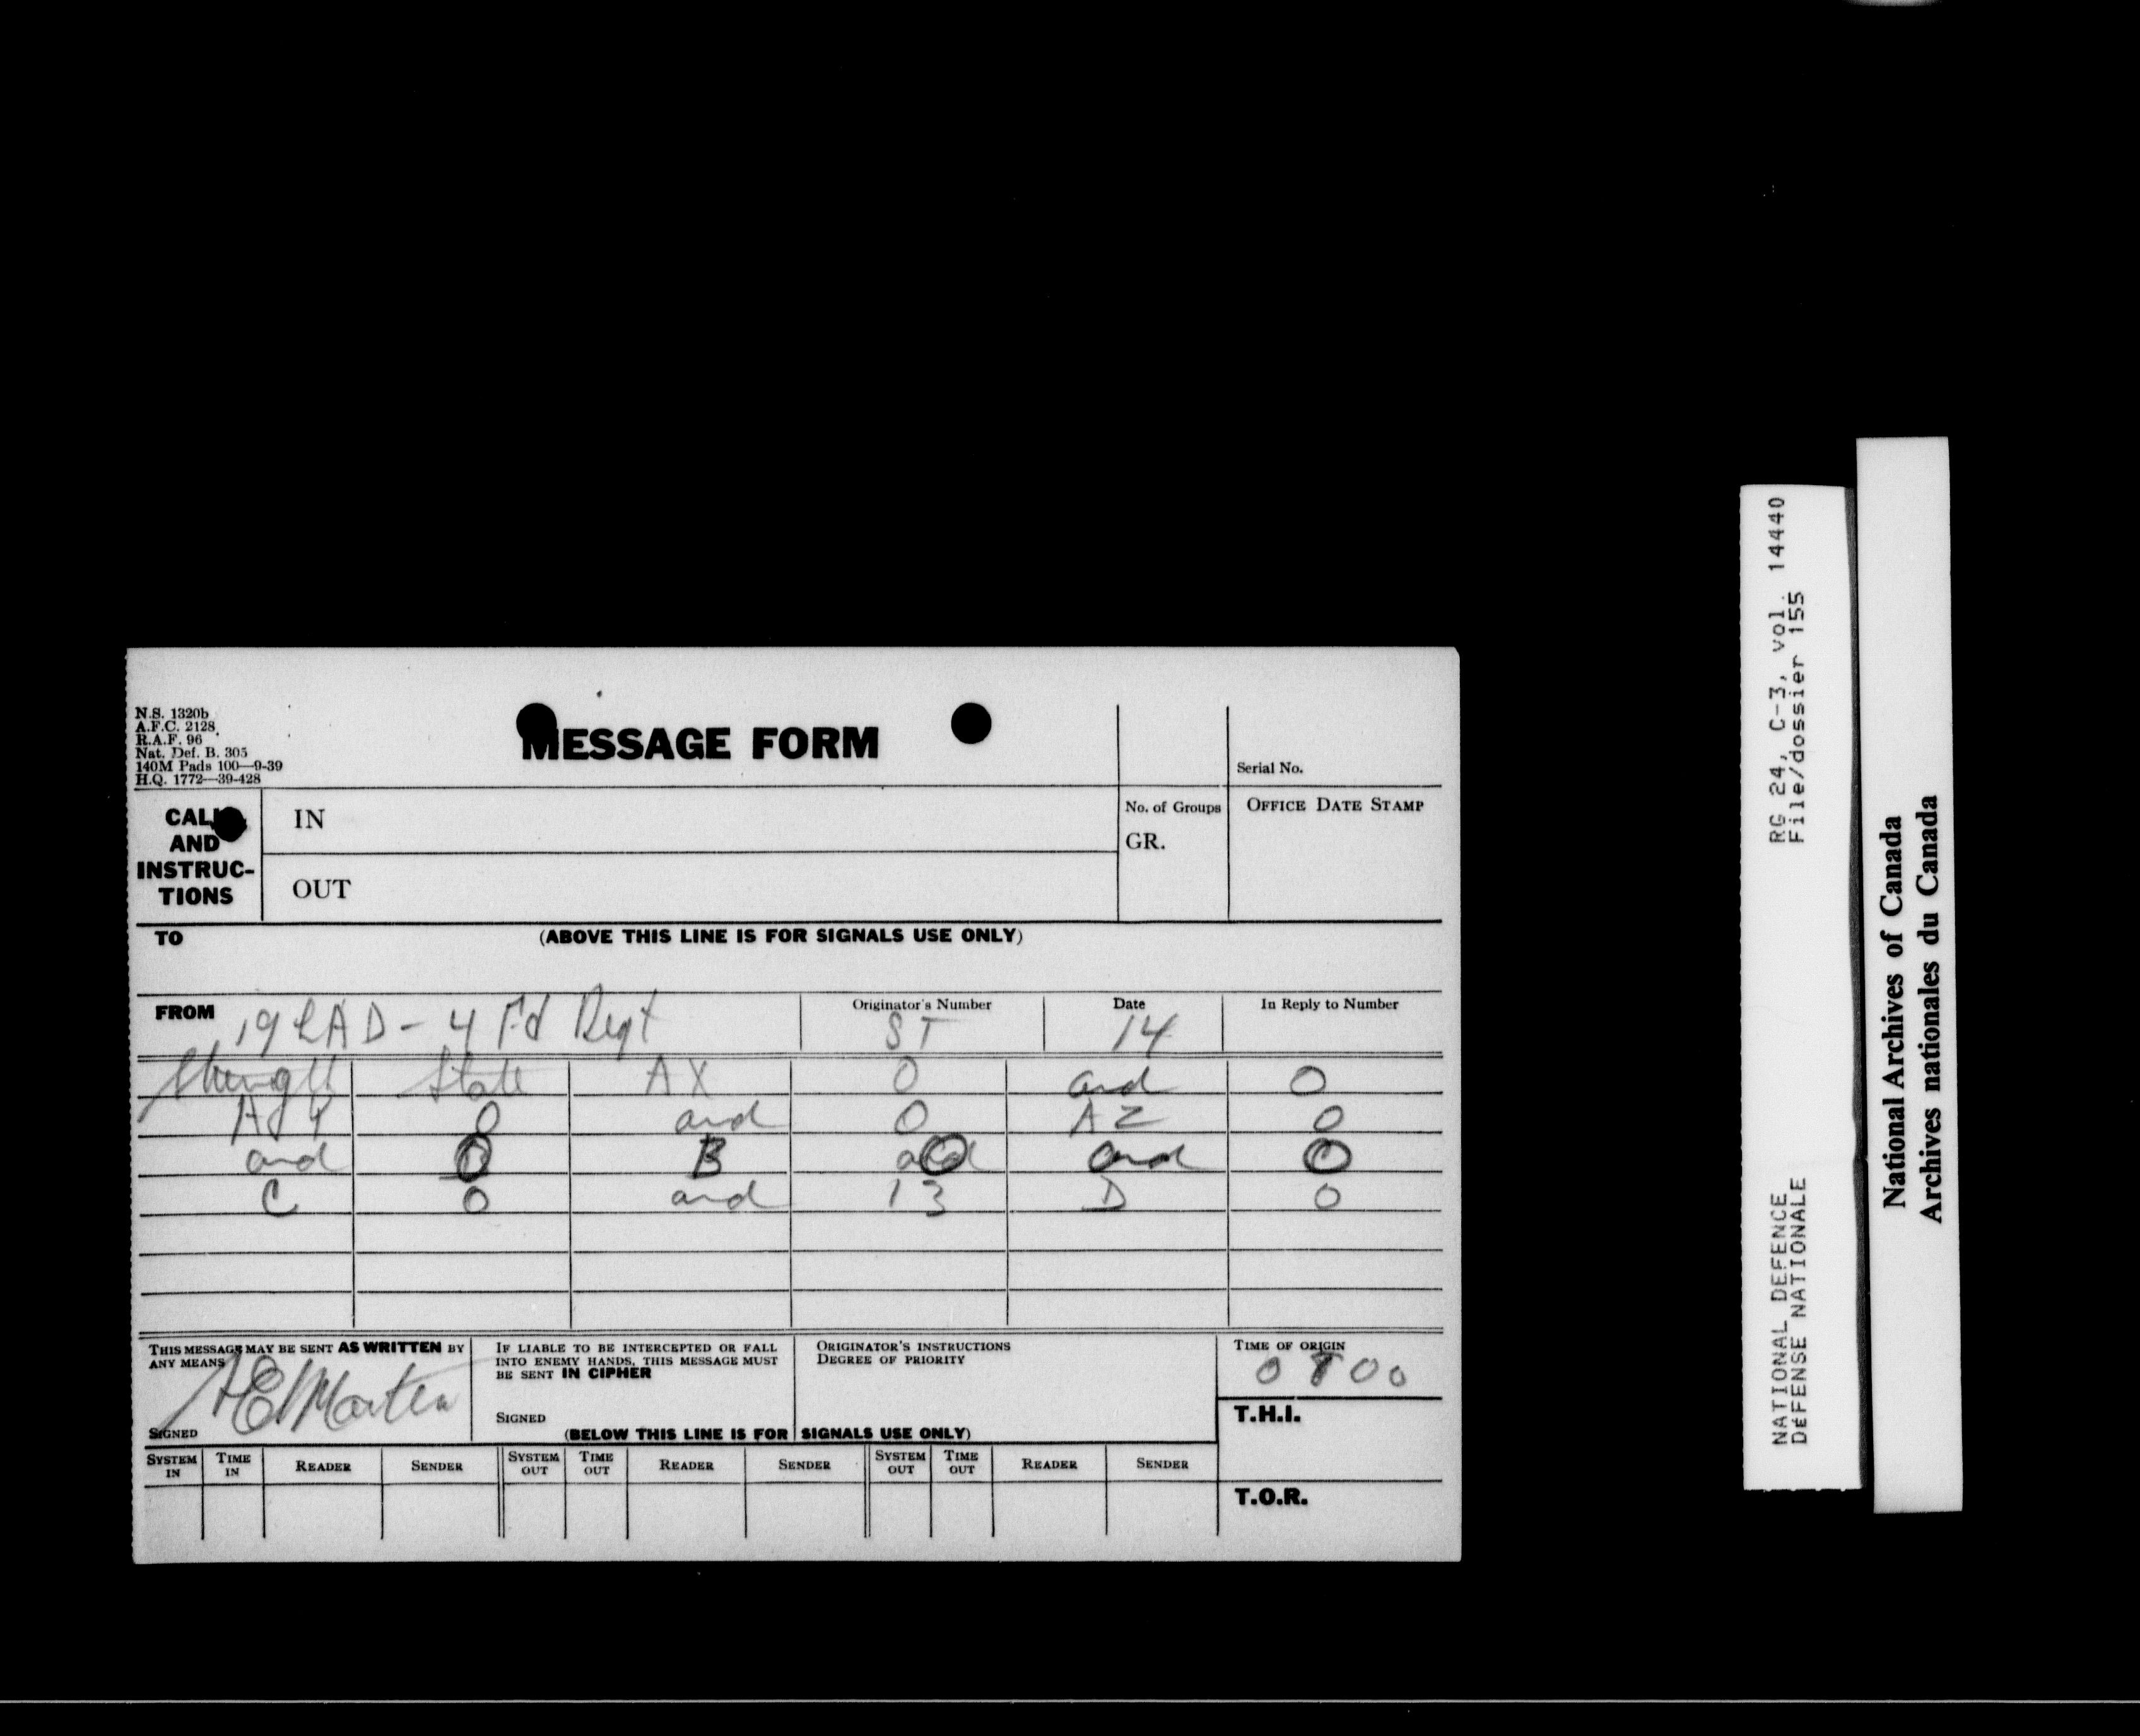 N.S. 1320b
A.F.C. 2128
R.A.F. 96
Nat. Def. B. 305
140M Pads 100—9-39
H.Q. 1772—39-428
MESSAGE FORM
Serial No.
CALL
AND
INSTRUC-
TIONS
IN
OUT
No. of Groups
GR.
OFFICE DATE STAMP
TO
(ABOVE THIS LINE IS FOR SIGNALS USE ONLY)
FROM 19 LAD - 4 Fd Regt
Originator's Number
ST
Date
14
In Reply to Number
Strength State AX 0 and 0
0 and 0 AZ 0
and 0 B 0 and 0
C 0 and 13 D 0
THIS MESSAGE MAY BE SENT AS WRITTEN BY
ANY MEANS
SIGNED
IF LIABLE TO BE INTERCEPTED OR FALL
INTO ENEMY HANDS, THIS MESSAGE MUST
BE SENT IN CIPHER
SIGNED
ORIGINATOR'S INSTRUCTIONS
DEGREE OF PRIORITY
TIME OF ORIGIN
0800
T.H.I.
(BELOW THIS LINE IS FOR SIGNALS USE ONLY)
SYSTEM IN TIME IN READER SENDER SYSTEM OUT TIME OUT READER SENDER SYSTEM OUT TIME OUT READER SENDER
T.O.R.
NATIONAL DEFENCE RG 24, C-3, vol. 14440
DÉFENSE NATIONALE File/dossier 155
National Archives of Canada
Archives nationales du Canada